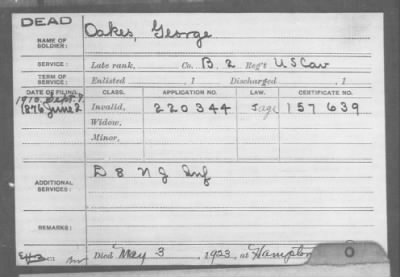 DEAD
NAME OF SOLDIER: Oakes, George
SERVICE: Late rank, Co. B, 2 Reg't U S Cav
TERM OF SERVICE: Enlisted , 1 Discharged , 1
DATE OF FILING. CLASS. APPLICATION NO. LAW. CERTIFICATE NO.
1910. Sept. 9.
1876 June 2 Invalid, 220344 157639
Widow.
Minor.
ADDITIONAL SERVICES: D 8 N J Inf
REMARKS:
Died May 3, 1923, at Hampton